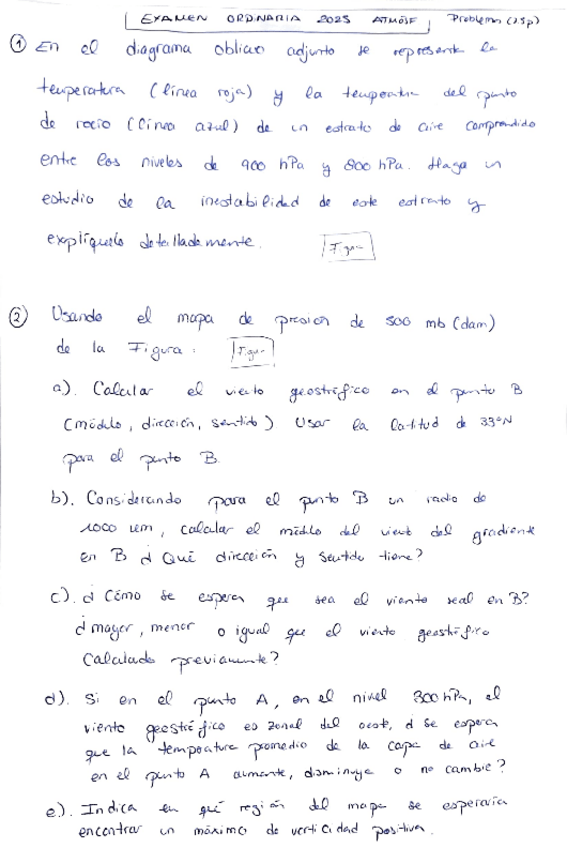 EXAMEN ORDINARIA 2025 ATMÓSF
Problemas (2.5p)
① En el diagrama oblicuo adjunto se representa la
temperatura (línea roja) y la temperatura del punto
de rocío (línea azul) de un estrato de aire comprendido
entre los niveles de 900 hPa y 800 hPa. Haga un
estudio de la inestabilidad de este estrato y
explíquelo detalladamente.
Figura
② Usando el mapa de presión de 500 mb (dam)
de la Figura:
Figura
a). Calcular el viento geostrófico en el punto B
(módulo, dirección, sentido) Usar la latitud de 33°N
para el punto B.
b). Considerando para el punto B un radio de
1000 km, calcular el módulo del viento del gradiente
en B ¿Qué dirección y sentido tiene?
c). ¿Cómo se espera que sea el viento real en B?
¿mayor, menor o igual que el viento geostrófico
calculado previamente?
d). Si en el punto A, en el nivel 300 hPa, el
viento geostrófico es zonal del oeste, ¿se espera
que la temperatura promedio de la capa de aire
en el punto A aumente, disminuya o no cambie?
e). Indica en qué región del mapa se esperaría
encontrar un máximo de verticidad positiva.